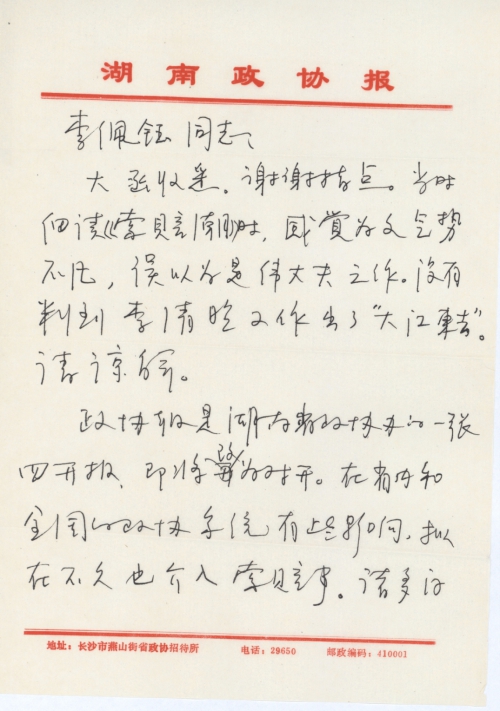 湖南政协报
李佩钰同志：
大函收悉。谢谢指点。当时
细读《索贝言潮》时，感觉为文气势
不凡，误以为是伟大夫之作。没有
料到李清照又作出了“大江东去”。
请谅解。
政协报是湖南省政协办的一张
四开报，即将改为对开。在省内和
全国的政协系统有些影响，拟
在不久也介入索贝事。请多
地址：长沙市燕山街省政协招待所 电话：29650 邮政编码：410001